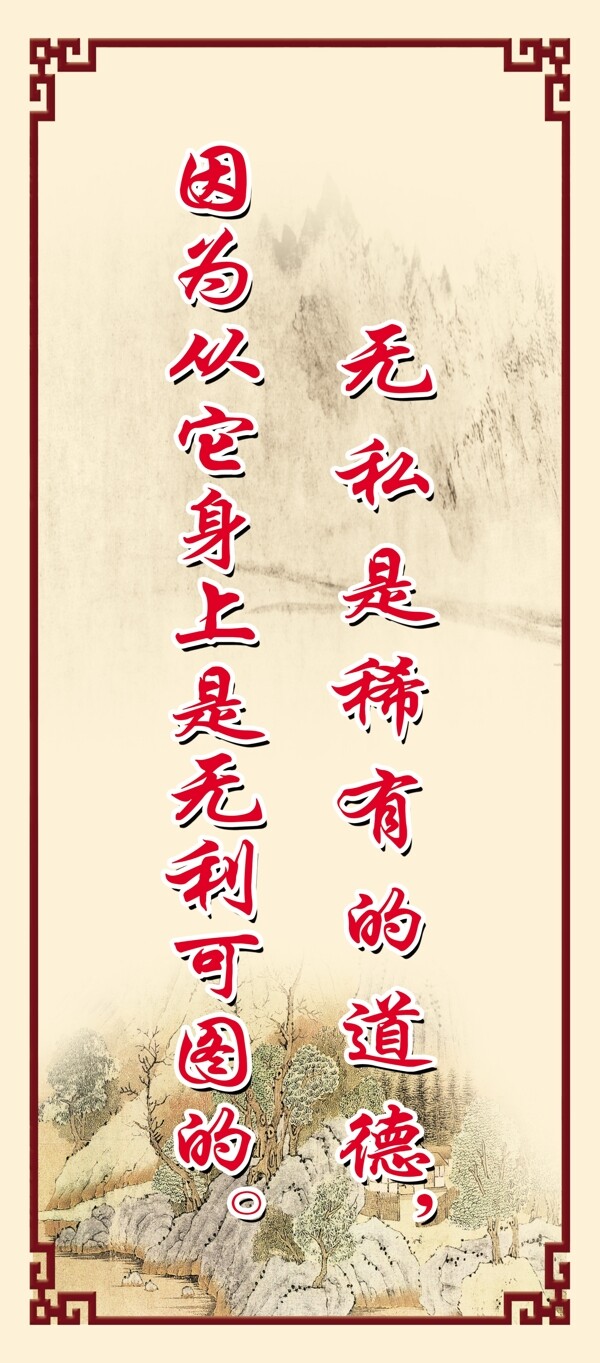 无私是稀有的道德，
因为从它身上是无利可图的。